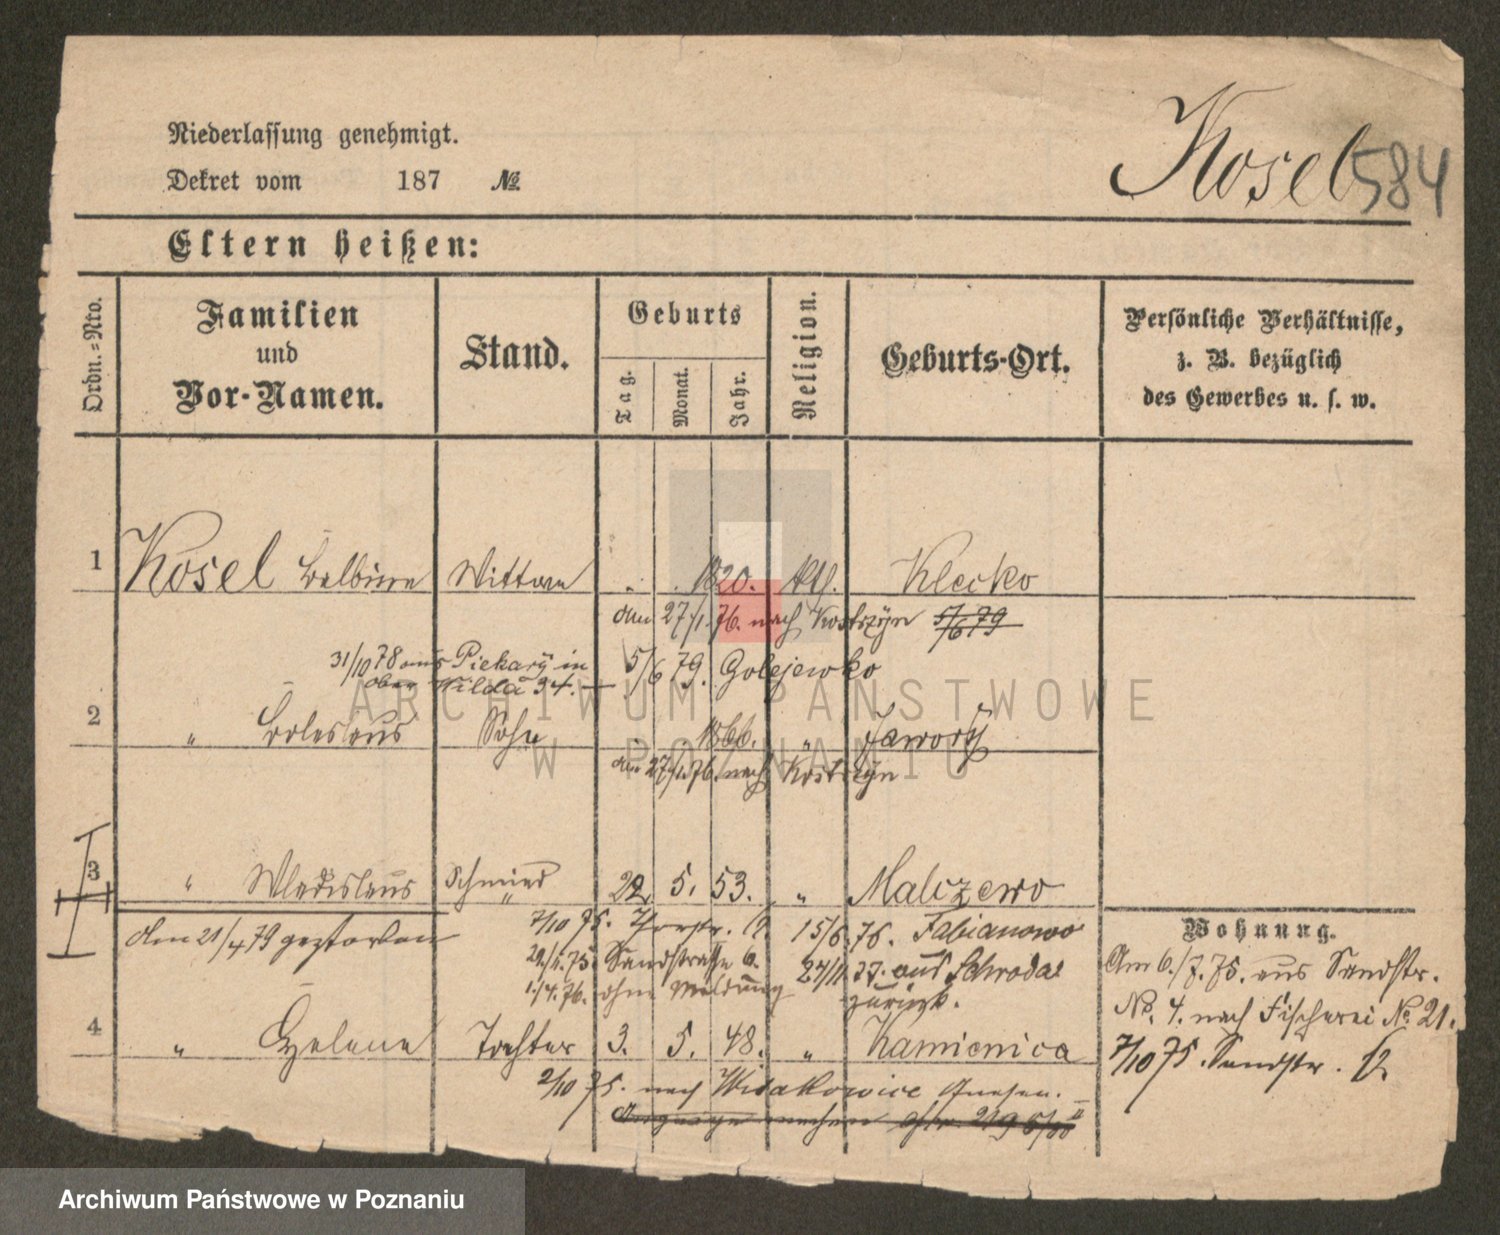 Niederlassung genehmigt.
Dekret vom 187 №
Kosel 584
Eltern heißen:
Ordn.-Nro.
Familien
und
Vor-Namen.
Stand.
Geburts
Tag.
Monat.
Jahr.
Religion.
Geburts-Ort.
Persönliche Verhältnisse,
z. B. bezüglich
des Gewerbes u. s. w.
1 Kosel Balbina Wittwe 1820. kth. Klecko
am 27/1. 76. nach Kostrzyn 5/6 79
31/10 78 aus Piekary in 5/6 79. Golejewko
ober Wilda 34.
2 " Boleslaus Sohn 1866. " Jawory
am 27/1 76. nach Kostrzyn
3 " Wladislaus Schmied 22. 5. 53. " Malczewo
am 21/4 79 gestorben
7/10 75. 15/6 76. Fabianowo
75. Sandstraße 6. 27/11 77. aus Schroda
1/4. 76. ohne Meldung zurück.
Wohnung.
Am 6./7. 75. aus Sandstr.
No. 4. nach Fischerei No 21.
7/10 75. Sandstr. 12
4 " Helene Tochter 3. 5. 48. " Kamienica
2/10 75. nach Witakowice Gnesen.
ARCHIWUM PAŃSTWOWE
W POZNANIU
Archiwum Państwowe w Poznaniu